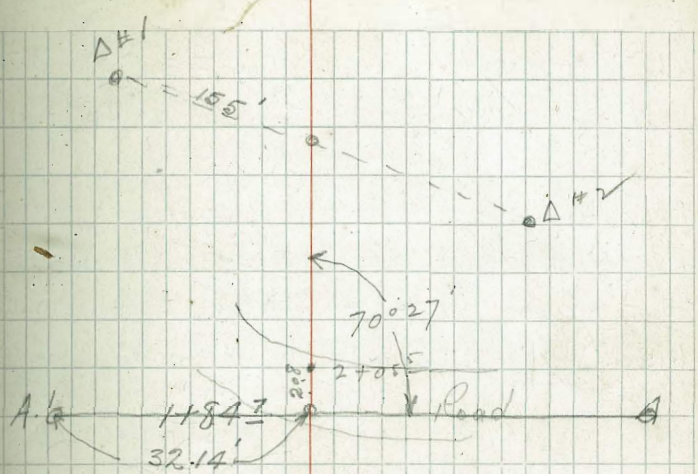 Δ #1
155'
Δ #2
70° 27'
2+05⁵
20.8
1+84⁷ Road
32.14'